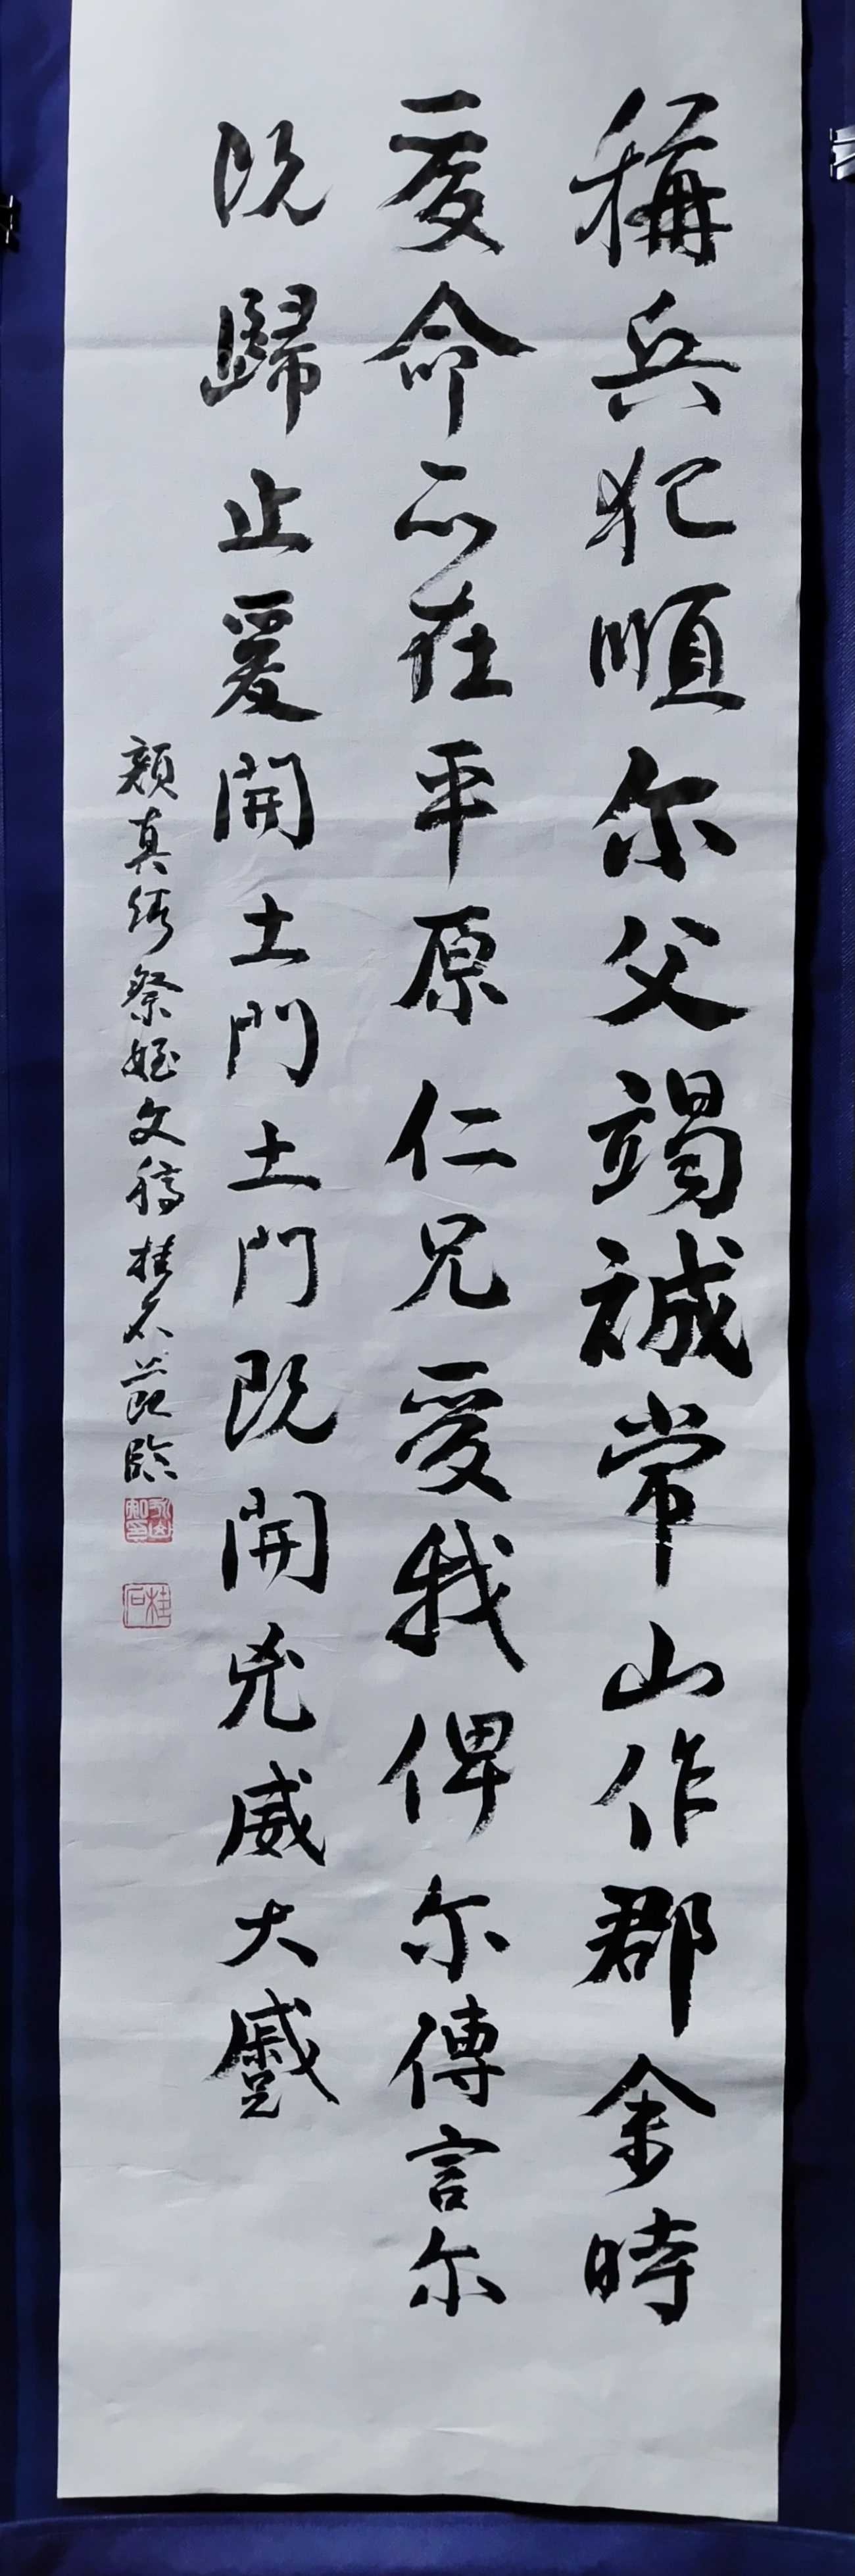 稱兵犯順尔父竭誠常山作郡余時
受命亦在平原仁兄愛我俾尔傳言尔
既歸止爰開土門土門既開兇威大蹙
顏真卿祭姪文稿桂石節臨
桂石